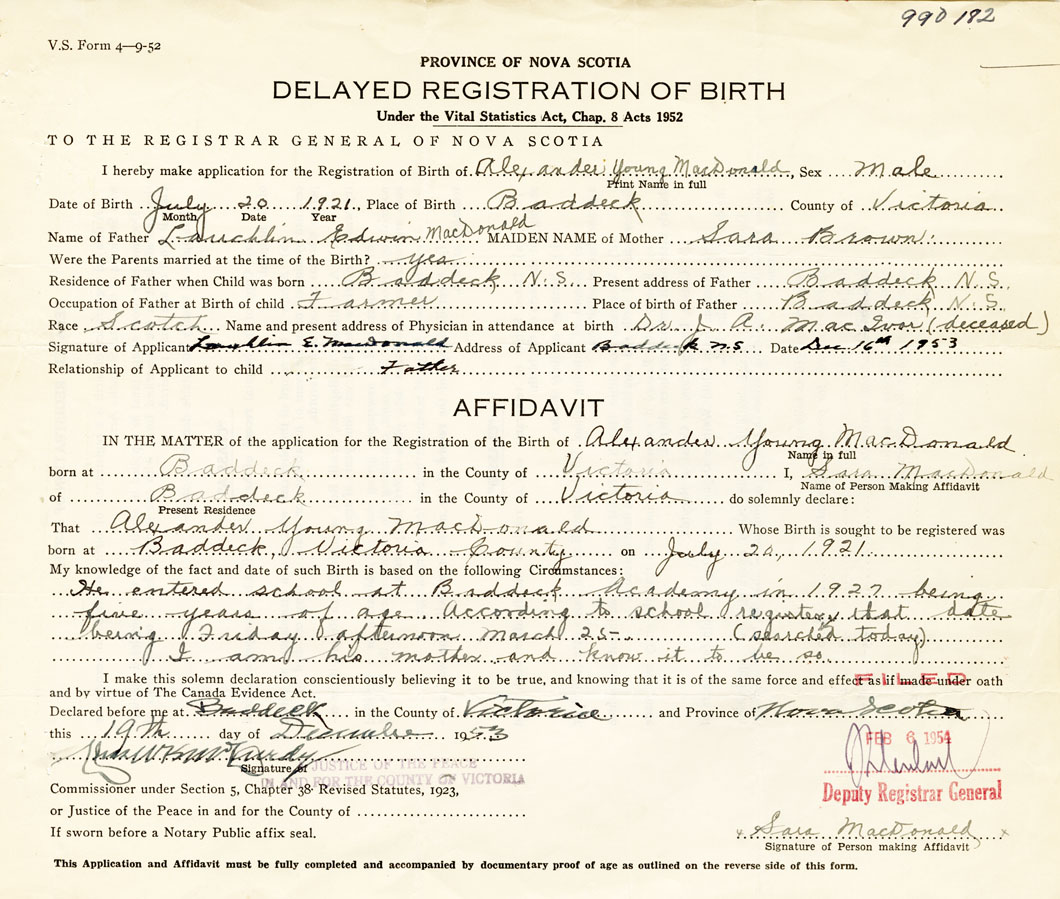 990182
V.S. Form 4—9-52
PROVINCE OF NOVA SCOTIA
DELAYED REGISTRATION OF BIRTH
Under the Vital Statistics Act, Chap. 8 Acts 1952
TO THE REGISTRAR GENERAL OF NOVA SCOTIA
I hereby make application for the Registration of Birth of Alexander Young MacDonald, Sex Male
Print Name in full
Date of Birth July 20 1921, Place of Birth Baddeck County of Victoria
Month Date Year
Name of Father Lauchlin Edwin MacDonald MAIDEN NAME of Mother Sara Brown
Were the Parents married at the time of the Birth? yes
Residence of Father when Child was born Baddeck N.S. Present address of Father Baddeck N.S.
Occupation of Father at Birth of child Farmer Place of birth of Father Baddeck, N.S.
Race Scotch Name and present address of Physician in attendance at birth Dr. J. A. MacIvor (deceased)
Signature of Applicant Lauchlin E. MacDonald Address of Applicant Baddeck N.S Date Dec 16th 1953
Relationship of Applicant to child Father
AFFIDAVIT
IN THE MATTER of the application for the Registration of the Birth of Alexander Young MacDonald
Name in full
born at Baddeck in the County of Victoria I, Sara MacDonald
Name of Person Making Affidavit
of Baddeck in the County of Victoria do solemnly declare:
Present Residence
That Alexander Young MacDonald Whose Birth is sought to be registered was
born at Baddeck, Victoria County on July 20, 1921
My knowledge of the fact and date of such Birth is based on the following Circumstances:
He entered school at Baddeck Academy in 1927 being
five years of age. According to school register, that date
being Friday afternoon March 25- (searched today)
I am his mother and know it to be so.
I make this solemn declaration conscientiously believing it to be true, and knowing that it is of the same force and effect as if made under oath
FILED
and by virtue of The Canada Evidence Act.
Declared before me at Baddeck in the County of Victoria and Province of Nova Scotia
this 19th day of December 1953
FEB 6 1954
Signature of
JUSTICE OF THE PEACE
IN AND FOR THE COUNTY OF VICTORIA
Deputy Registrar General
Commissioner under Section 5, Chapter 38 Revised Statutes, 1923,
or Justice of the Peace in and for the County of
If sworn before a Notary Public affix seal.
x Sara MacDonald x
Signature of Person making Affidavit
This Application and Affidavit must be fully completed and accompanied by documentary proof of age as outlined on the reverse side of this form.